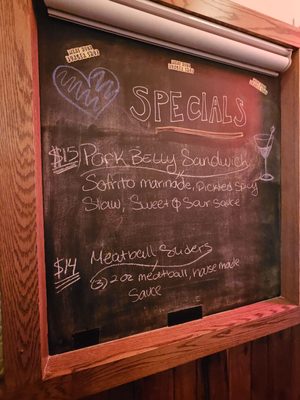 SPECIALS
$15 Pork Belly Sandwich
Sofrito marinade, Pickled Spicy
Slaw, Sweet & Sour Sauce
$14 Meatball Sliders
(3) 2oz meatball, house made
Sauce